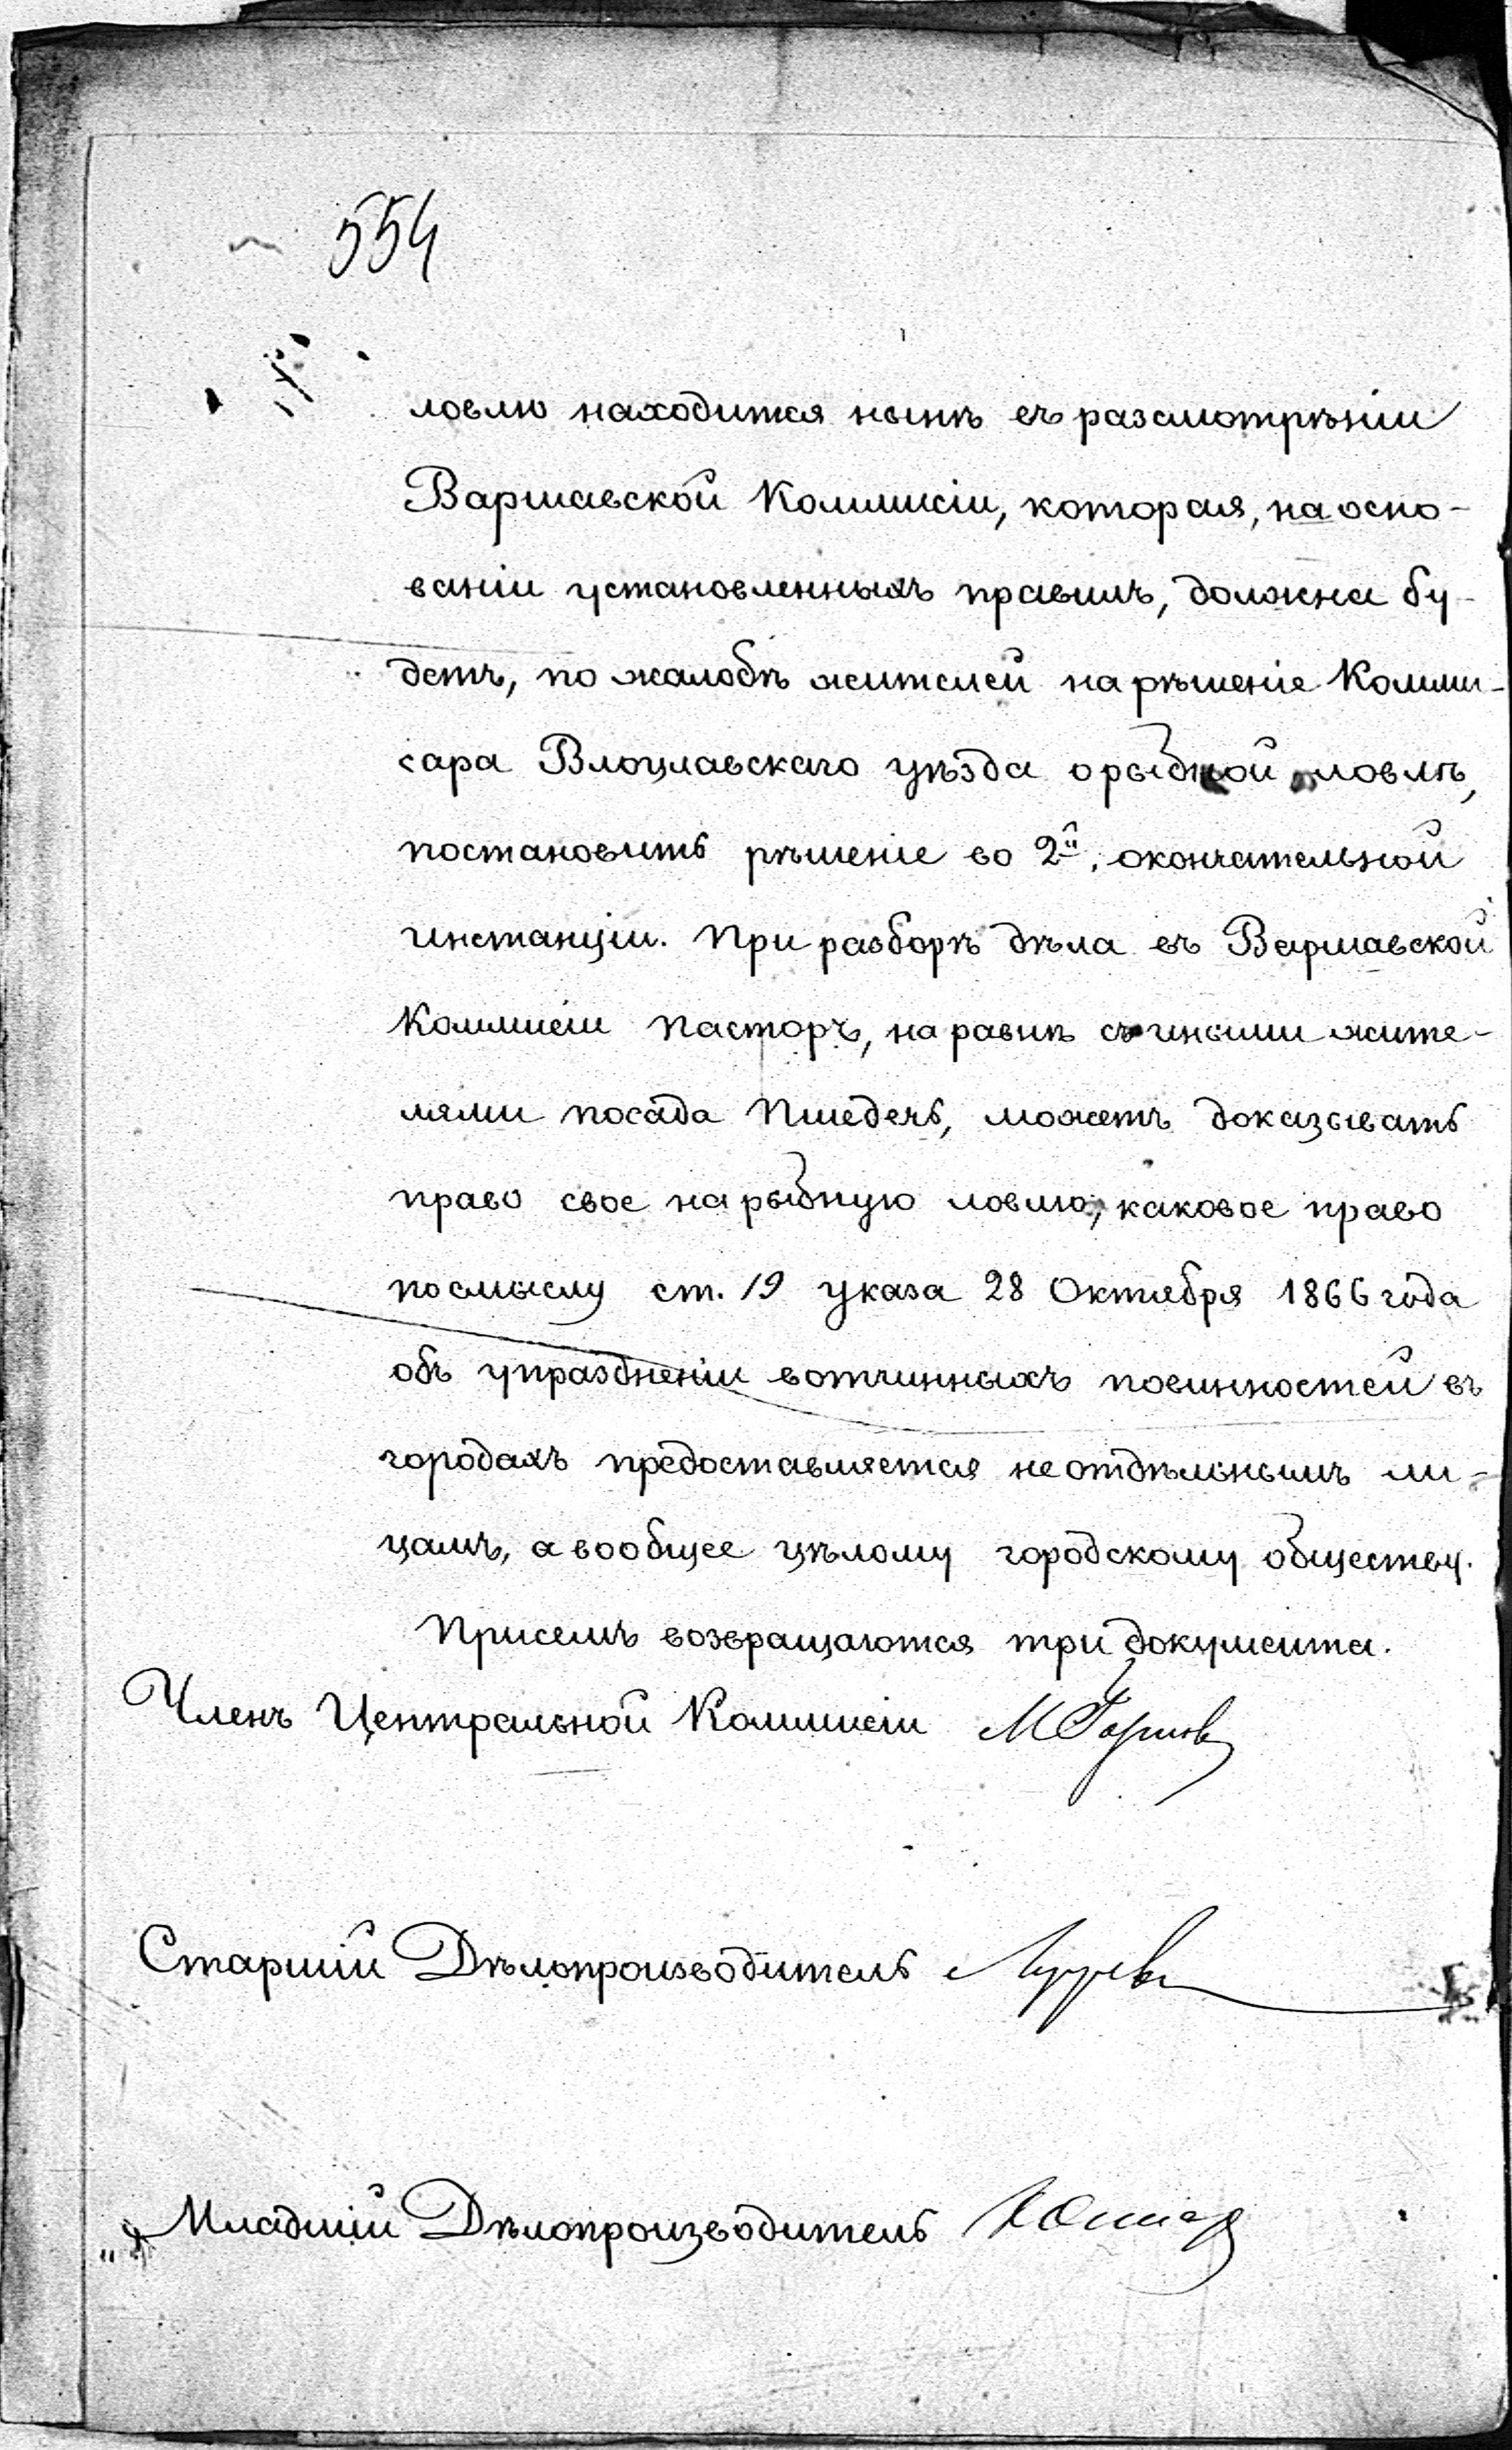 554
ловлю находится нынѣ въ разсмотрѣніи
Варшавской Коммисіи, которая, на осно-
ваніи установленныхъ правилъ, должна бу-
детъ, по жалобѣ жителей на рѣшеніе Комми-
сара Влоцлавскаго уѣзда о рыбной ловлѣ,
постановить рѣшеніе во 2й, окончательной
инстанціи. При разборѣ дѣла въ Варшавской
Коммисіи Пасторъ, на равнѣ съ иными жите-
лями посада Пшедечь, можетъ доказывать
право свое на рыбную ловлю, каковое право
по смыслу ст. 19 указа 28 Октября 1866 года
объ упраздненіи вотчинныхъ повинностей въ
городахъ предоставляется не отдѣльнымъ ли-
цамъ, а вообщее цѣлому городскому обществу.
При семъ возвращаются три документа.
Членъ Центральной Коммисіи
Старшій Дѣлопроизводитель
Младшій Дѣлопроизводитель